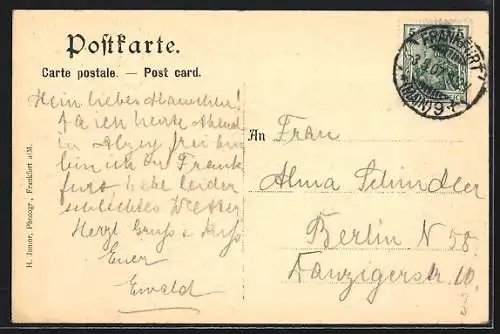 Postkarte.
Carte postale. — Post card.
5
FRANKFURT
(MAIN) 9
Mein liebes
Da ich heute Abend
in Alzey frei bin
bin ich in Frank
furt, habe leider
schlechtes Wetter
Herzl Gruss & Kuss
Euer
Ewald
An Frau
Alma Schindler
Berlin N 58.
Danzigerstr 10.
H. Junor, Photogr., Frankfurt a/M.